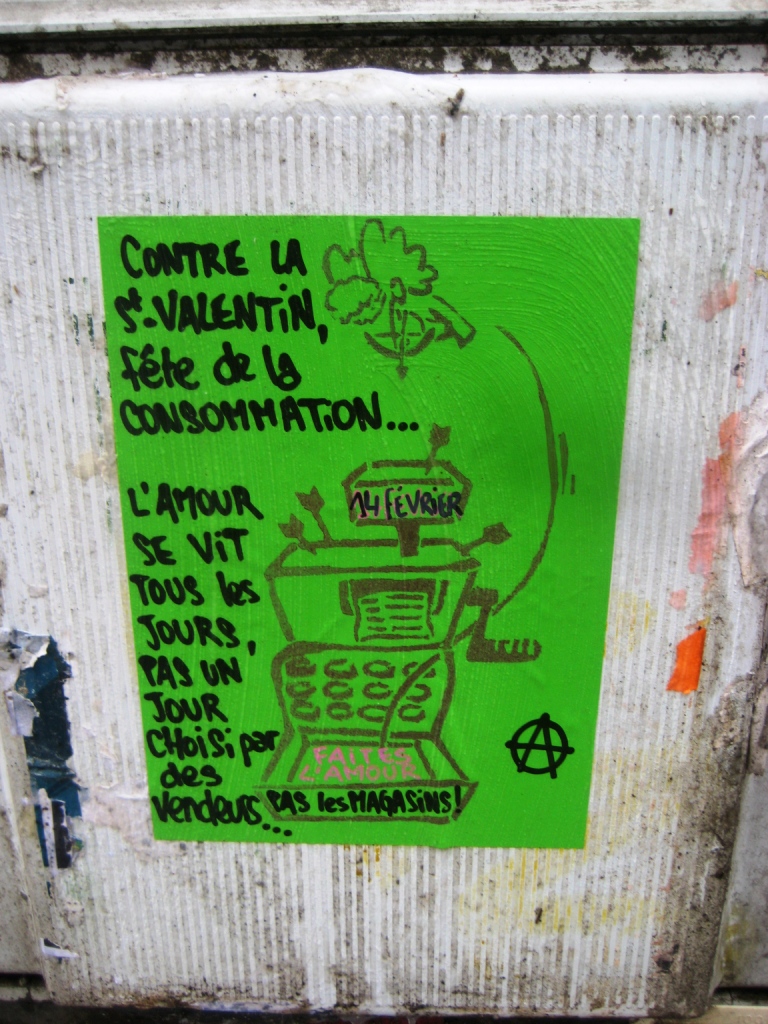 CONTRE LA
St-VALENTIN,
fête de la
CONSOMMATION...
L'AMOUR
SE VIT
TOUS les
JOURS,
PAS UN
JOUR
CHOISI par
des
vendeurs...
14 FÉVRIER
FAITES
L'AMOUR
PAS les MAGASINS!
A